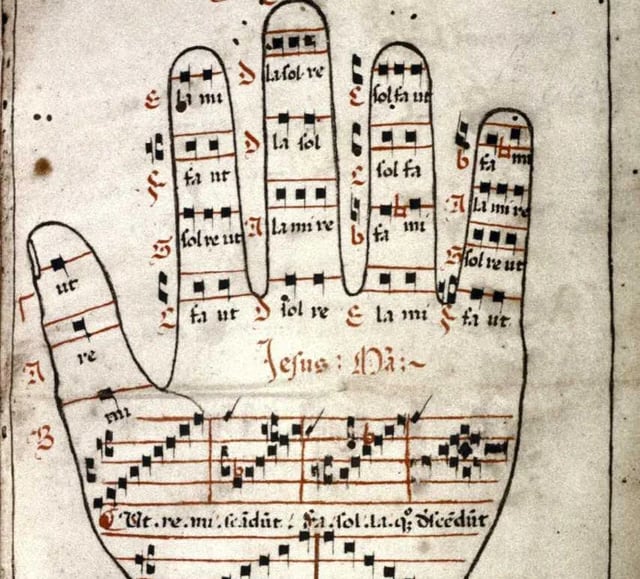 Γ ut
A re
B mi
E la mi
F fa ut
G sol re ut
C fa ut
D la sol re
D la sol
A la mi re
D sol re
C sol fa ut
C sol fa
b fa ♮ mi
E la mi
b fa ♮ mi
A la mi re
G sol re ut
F fa ut
Jesus : Mā :~
Ut . re . mi . scādūt . fa . sol . la . q; dscēdūt